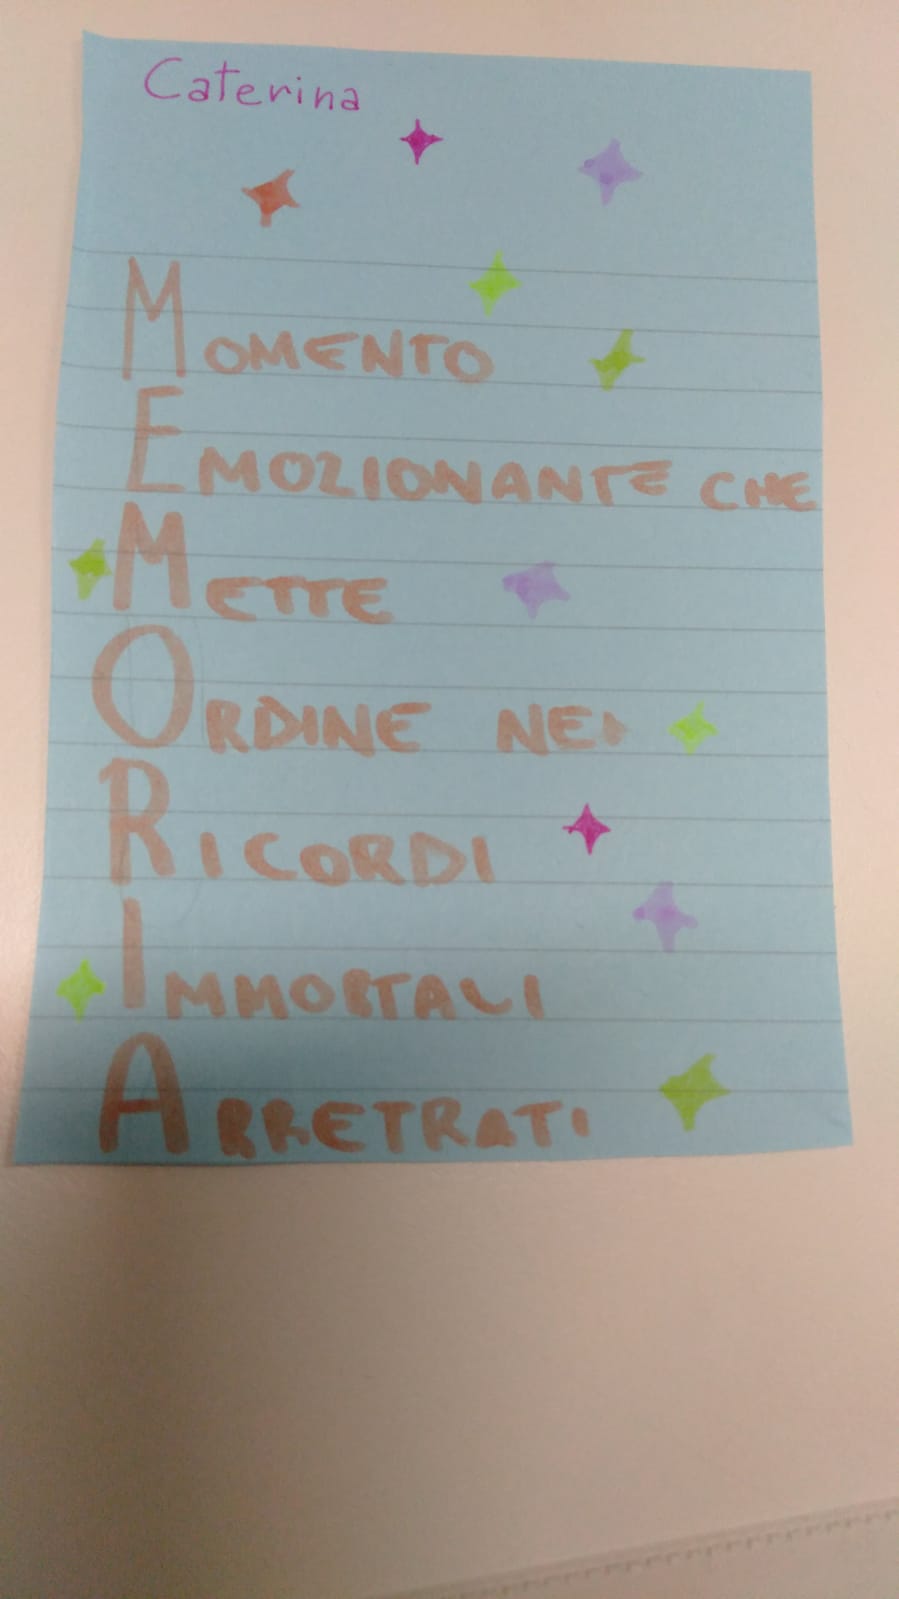 Caterina
MOMENTO
EMOZIONANTE CHE
METTE
ORDINE NEI
RICORDI
IMMORTALI
ARRETRATI